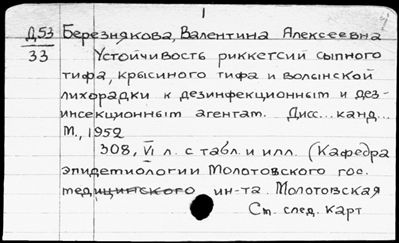 1
Д53 Березнякова, Валентина Алексеевна
33 Устойчивость риккетсий сыпного
тифа, крысиного тифа и волынской
лихорадки к дезинфекционным и дез-
инсекционным агентам. Дисс... канд...
М., 1952
308, VI л. с табл. и илл. (Кафедра
эпидемиологии Молотовского гос.
медицинского ин-та. Молотовская
См. след. карт